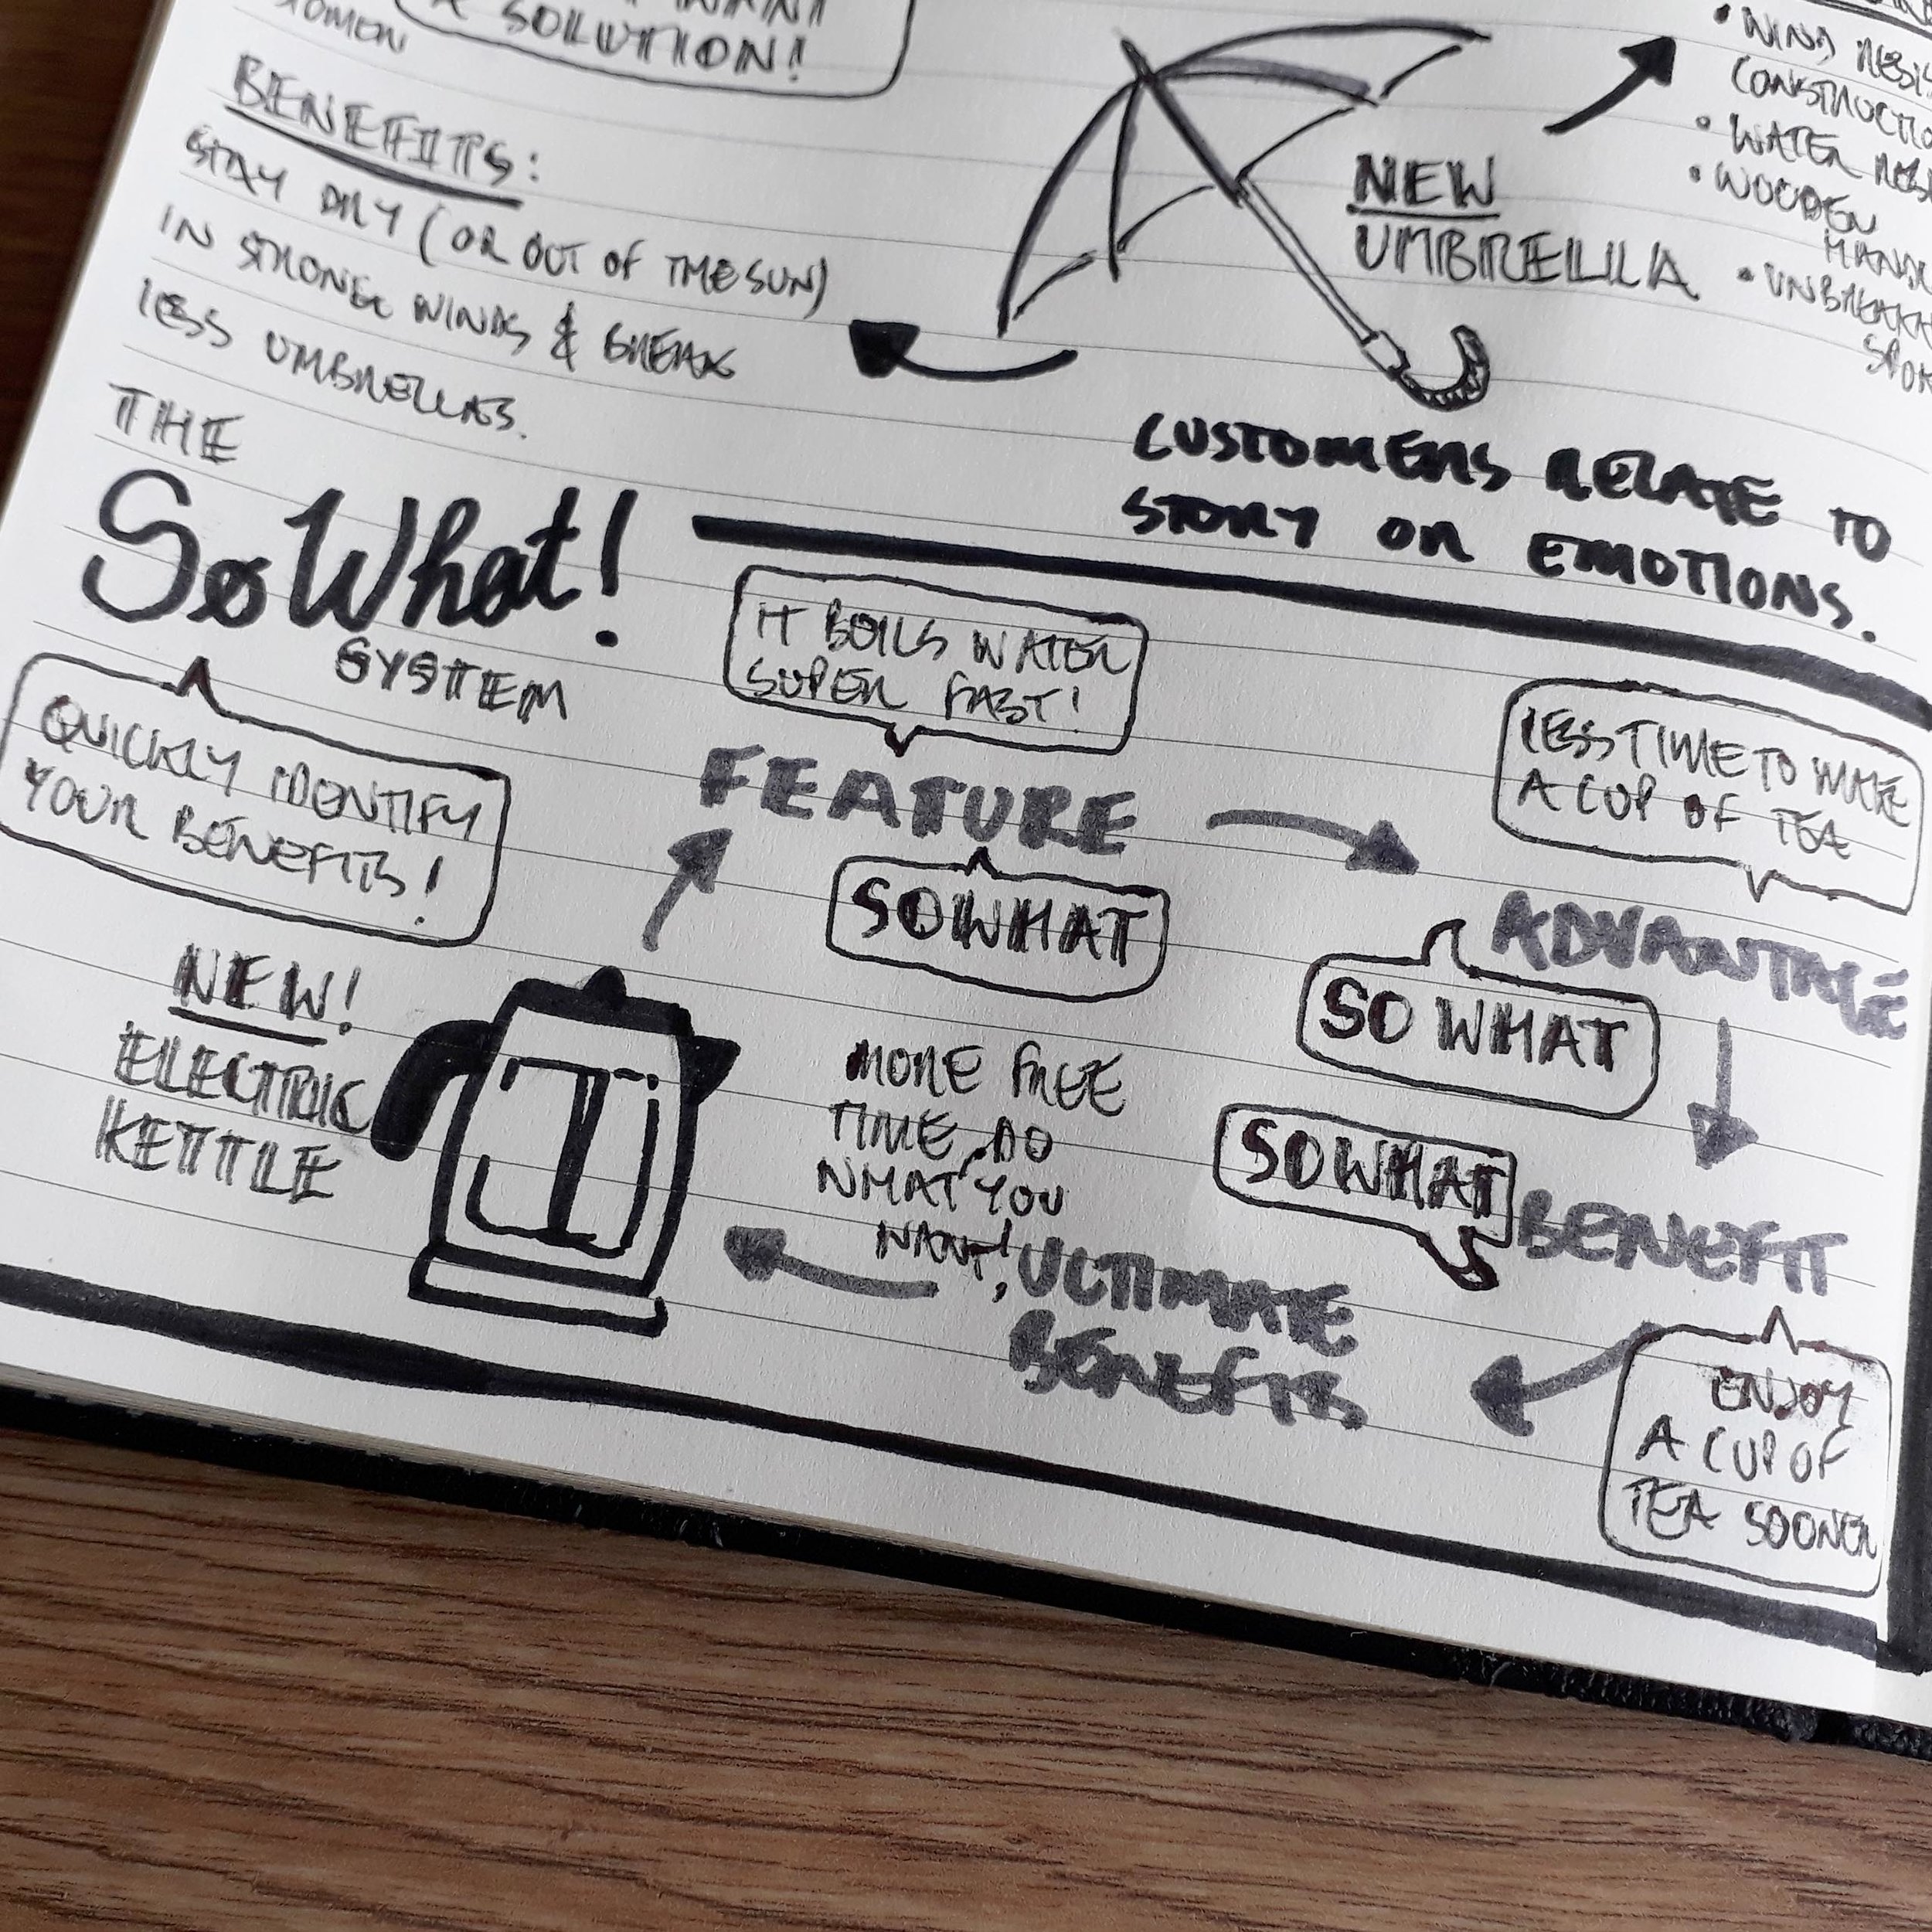 A SOLUTION!
BENEFITS:
STAY DRY (OR OUT OF THE SUN)
IN STRONG WINDS & BREAK
LESS UMBRELLAS.
NEW
UMBRELLA
• WIND
• WATER
• WOODEN
CUSTOMERS RELATE TO
STORY OR EMOTIONS.
THE
So What!
SYSTEM
QUICKLY IDENTIFY
YOUR BENEFITS!
IT BOILS WATER
SUPER FAST!
FEATURE
SO WHAT
LESS TIME TO MAKE
A CUP OF TEA
ADVANTAGE
SO WHAT
SO WHAT
BENEFIT
ENJOY
A CUP OF
TEA SOONER
MORE FREE
TIME, DO
WHAT YOU
WANT!
ULTIMATE
BENEFITS
NEW!
ELECTRIC
KETTLE